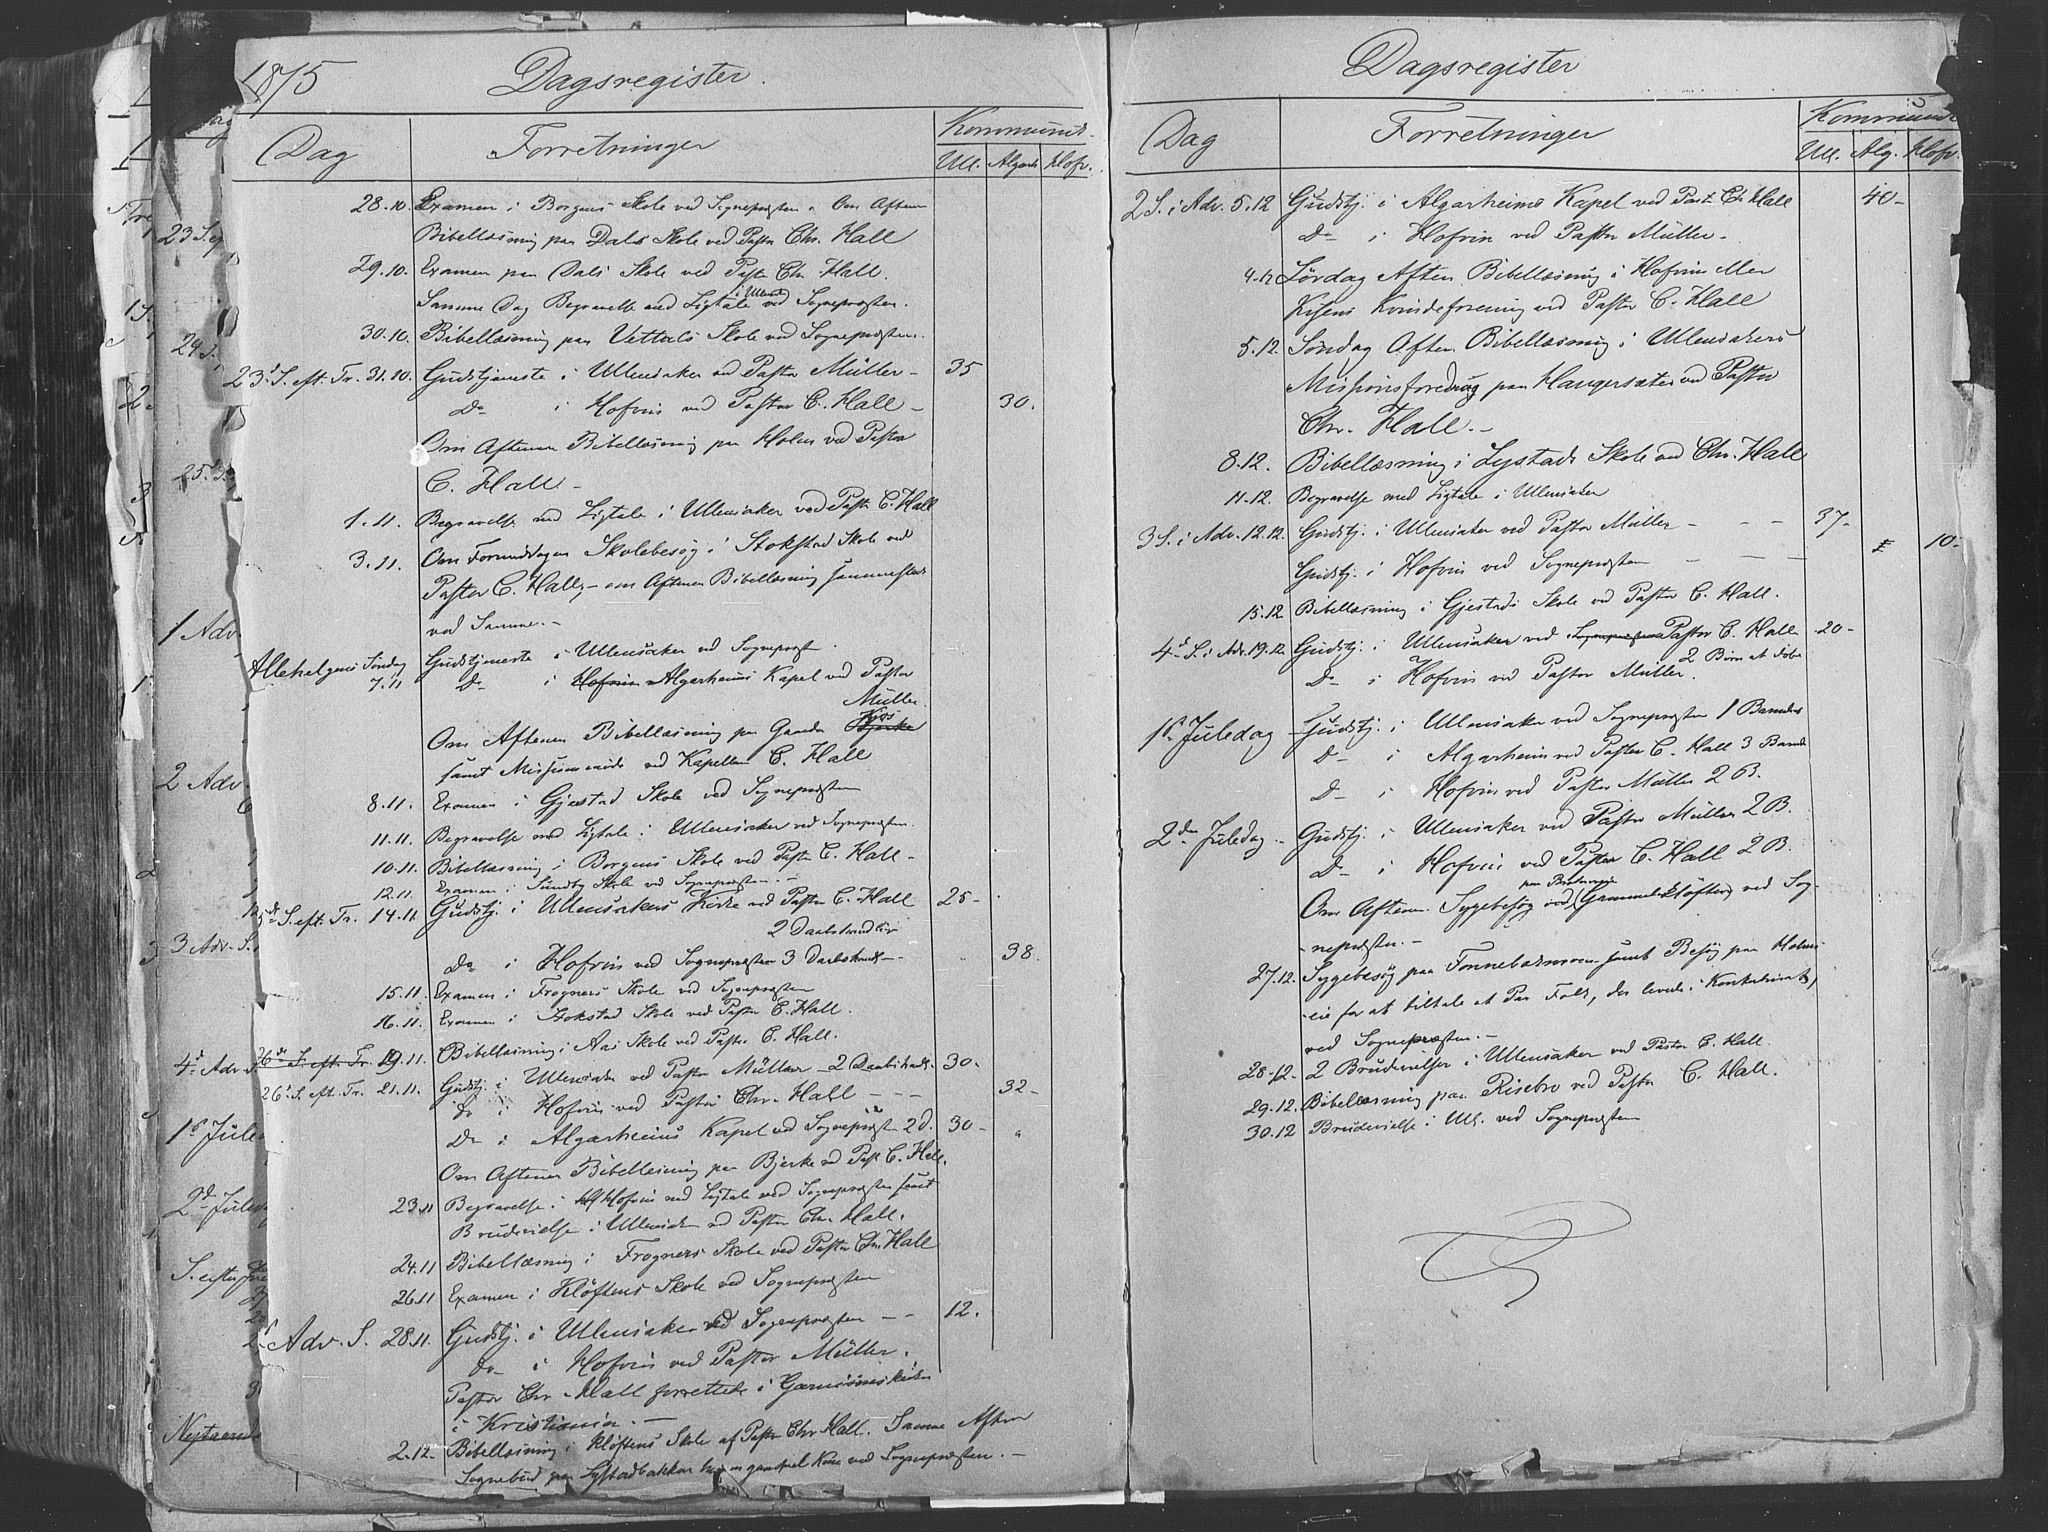 1875 Dagsregister.
Dag Forretninger Kommunik.
Ull. Algarh. Hofv.
28.10. Examen i Borgens Skole ved Sognepræsten. Om Aftenen
Bibellæsning paa Dals Skole ved Pastor Chr. Hall
29.10. Examen paa Dals Skole ved Pastor Chr. Hall.
Samme Dag Begravelse med Ligtale i Ullensaker ved Sognepræsten.
30.10. Bibellæsning paa Skole ved Sognepræsten.
23d S. eft. Tr. 31.10. Gudstjeneste i Ullensaker ved Pastor Müller - 35
Do i Hofvin ved Pastor C. Hall - 30.
Om Aftenen Bibellæsning paa Holm ved Pastor
C. Hall -
1.11. Begravelse med Ligtale i Ullensaker ved Pastor C. Hall
3.11. Om Formiddagen Skolebesøg i Stokstad Skole ved
Pastor C. Hall, - om Aftenen Bibellæsning sammesteds
ved Samme. -
Allehelgens Søndag Gudstjeneste i Ullensaker ved Sognepræst.
7.11 Do i Hofvin Algarheims Kapel ved Pastor
Müller.
Om Aftenen Bibellæsning paa Bjerke
samt ved Kapellan C. Hall
8.11. Examen i Gjestad Skole ved Sognepræsten
11.11. Begravelse med Ligtale i Ullensaker ved Sognepræsten.
10.11. Bibellæsning i Borgens Skole ved Pastor C. Hall -
12.11. Examen i Sundby Skole ved Sognepræsten. -
25de S. eft. Tr. 14.11. Gudstj. i Ullensakers Kirke ved Pastor C. Hall 25 -
2 Daabshandl.
Do i Hofvin ved Sognepræsten 3 Daabshandl - 38.
15.11. Examen i Frogners Skole ved Sognepræsten
16.11. Examen i Stokstad Skole ved Pastor C. Hall.
26de S. eft. Tr. 19.11. Bibellæsning i Aas Skole ved Pastor C. Hall.
26d S. eft. Tr. 21.11. Gudstj. i Ullensaker ved Pastor Müller - 2 Daabshandl. 30 -
do i Hofvin ved Pastor Chr. Hall - - - 32 -
Do i Algarheims Kapel ved Sognepræsten 2 d. 30 -
Om Aftenen Bibellæsning paa Bjerke ved Past C. Hall.
23.11 Begravelse i Hofvin med Ligtale ved Sognepræsten samt
Brudevielse i Ullensaker ved Pastor Chr. Hall.
24.11 Bibellæsning i Frogners Skole ved Pastor Chr. Hall
26.11 Examen i Kløftens Skole ved Sognepræsten
Adv. S. 28.11. Gudstj. i Ullensaker ved Sognepræsten - - 12.
do i Hofvin ved Pastor Müller.
Pastor Chr. Hall forrettede i Garnisonskirken
i Kristiania. -
2.12. Bibellæsning i Kløftens Skole af Pastor Chr Hall. Samme Aften
Sognebud paa Lystadbakken hos en gammel Kone ved Sognepræsten. -
Dagsregister
Dag Forretninger Kommunik
Ull. Alg. Hofv.
2 S. i Adv. 5.12 Gudstj. i Algarheims Kapel ved Past. C. Hall 40 -
Do i Hofvin ved Pastor Müller -
4.12 Lørdag Aften Bibellæsning i Hofvin
Kisens Kvindeforening ved Pastor C. Hall
5.12. Søndag Aften Bibellæsning i Ullensakers
Missionsforedrag paa Haugersæter ved Pastor
Chr. Hall. -
8.12. Bibellæsning i Lystads Skole ved Chr. Hall
11.12. Begravelse med Ligtale i Ullensaker
3 S. i Adv. 12.12. Gudstj. i Ullensaker ved Pastor Müller - - - 37 -
Gudstj. i Hofvin ved Sognepræsten - - - 10 -
15.12 Bibellæsning i Gjestads Skole ved Pastor C. Hall.
4d S. i Adv. 19.12. Gudstj. i Ullensaker ved Sognepræsten Pastor C. Hall 20 -
2 Børn at døbe
Do i Hofvin ved Pastor Müller.
1s Juledag Gudstj. i Ullensaker ved Sognepræsten 1 Barnedaab
D - i Algarheim ved Pastor C. Hall 3 Barnd
D - i Hofvin ved Pastor Müller 2 B.
2den Juledag - Gudstj. i Ullensaker ved Pastor Müller 2 B.
D - i Hofvin ved Pastor C. Hall 2 B.
Om Aftenen Sygebesøg ved Gammel-Kløften ved Sog-
-nepræsten. -
27.12. Sygebesøg paa Tonnebærmoen samt Besøg paa Holms-
-eie for at tiltale et Par Folk, der levede i Konkubinat,
ved Sognepræsten. -
28.12 - 2 Brudevielser i Ullensaker ved Pastor C. Hall.
29.12. Bibellæsning paa Risebro ved Pastor C. Hall.
30.12 Brudevielse i Ull. ved Sognepræsten
23 S. ef
24 S.
25. S.
1 Adv.
2 Adv.
3 Adv. S.
4d Adv. S
1s Jule
2d Jule
S. efter
Nytaars